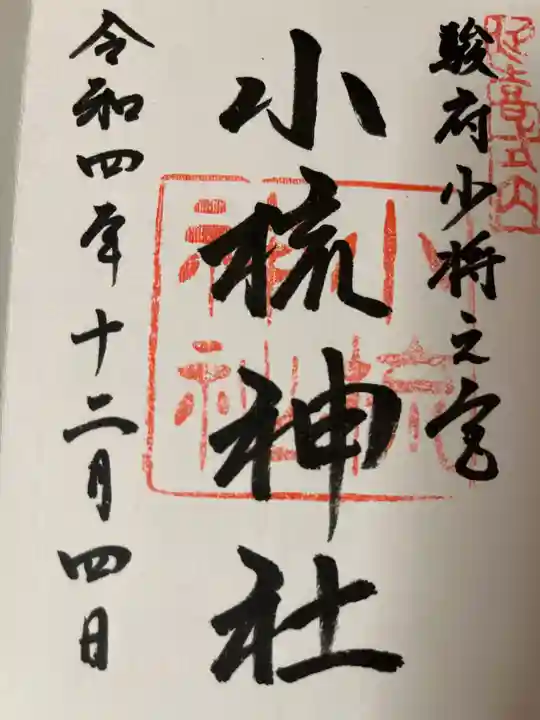 延喜式内
駿府少将之宮
小梳神社
小梳神社
令和四年十二月四日